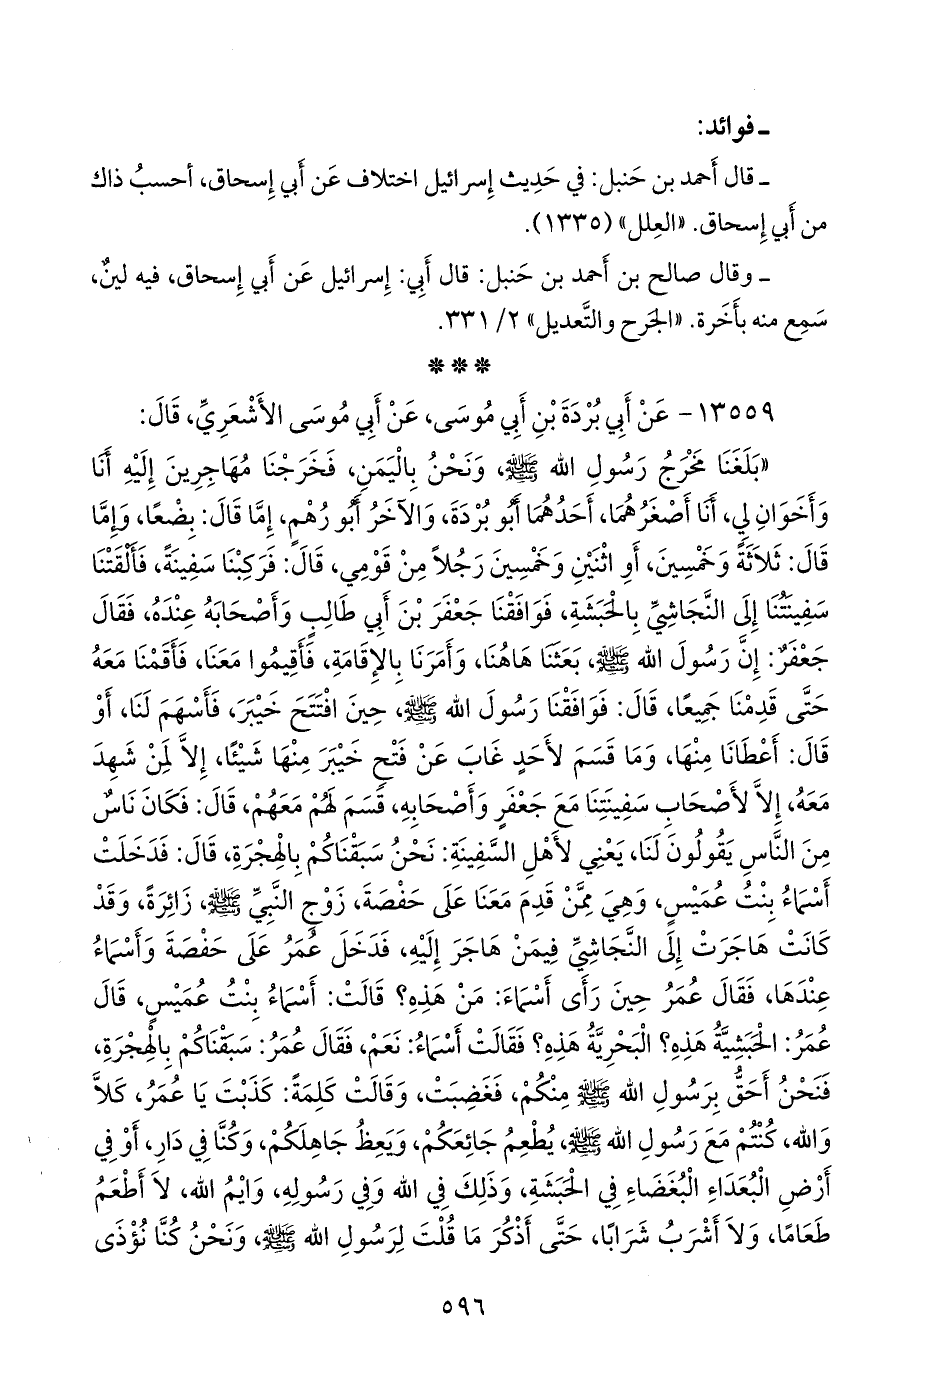 ـ فوائد:
ـ قال أَحمد بن حَنبل: في حَدِيث إِسرائيل اختلاف عَن أَبي إِسحاق، أحسبُ ذاك
من أَبي إِسحاق. «العِلل» (١٣٣٥).
ـ وقال صالح بن أَحمد بن حَنبل: قال أَبِي: إِسرائيل عَن أَبي إِسحاق، فيه لينٌ،
سَمِع منه بأَخَرة. «الجَرح والتَّعديل» ٢/ ٣٣١.
* * *
١٣٥٥٩- عَنْ أَبِي بُرْدَةَ بْنِ أَبِي مُوسَى، عَنْ أَبِي مُوسَى الأَشْعَرِيِّ، قَالَ:
«بَلَغَنَا مَخْرَجُ رَسُولِ الله ﷺ، وَنَحْنُ بِالْيَمَنِ، فَخَرَجْنَا مُهَاجِرِينَ إِلَيْهِ أَنَا
وَأَخَوَانِ لِي، أَنَا أَصْغَرُهُمَا، أَحَدُهُمَا أَبُو بُرْدَةَ، وَالآخَرُ أَبُو رُهْمٍ، إِمَّا قَالَ: بِضْعًا، وَإِمَّا
قَالَ: ثَلاَثَةً وَخَمْسِينَ، أَوِ اثْنَيْنِ وَخَمْسِينَ رَجُلاً مِنْ قَوْمِي، قَالَ: فَرَكِبْنَا سَفِينَةً، فَأَلْقَتْنَا
سَفِينَتُنَا إِلَى النَّجَاشِيِّ بِالْحَبَشَةِ، فَوَافَقْنَا جَعْفَرَ بْنَ أَبِي طَالِبٍ وَأَصْحَابَهُ عِنْدَهُ، فَقَالَ
جَعْفَرٌ: إِنَّ رَسُولَ الله ﷺ، بَعَثَنَا هَاهُنَا، وَأَمَرَنَا بِالإِقَامَةِ، فَأَقِيمُوا مَعَنَا، فَأَقَمْنَا مَعَهُ
حَتَّى قَدِمْنَا جَمِيعًا، قَالَ: فَوَافَقْنَا رَسُولَ الله ﷺ، حِينَ افْتَتَحَ خَيْبَرَ، فَأَسْهَمَ لَنَا، أَوْ
قَالَ: أَعْطَانَا مِنْهَا، وَمَا قَسَمَ لأَحَدٍ غَابَ عَنْ فَتْحِ خَيْبَرَ مِنْهَا شَيْئًا، إِلاَّ لِمَنْ شَهِدَ
مَعَهُ، إِلاَّ لأَصْحَابِ سَفِينَتِنَا مَعَ جَعْفَرٍ وَأَصْحَابِهِ، قَسَمَ لَهُمْ مَعَهُمْ، قَالَ: فَكَانَ نَاسٌ
مِنَ النَّاسِ يَقُولُونَ لَنَا، يَعْنِي لأَهْلِ السَّفِينَةِ: نَحْنُ سَبَقْنَاكُمْ بِالْهِجْرَةِ، قَالَ: فَدَخَلَتْ
أَسْمَاءُ بِنْتُ عُمَيْسٍ، وَهِيَ مِمَّنْ قَدِمَ مَعَنَا عَلَى حَفْصَةَ، زَوْجِ النَّبِيِّ ﷺ، زَائِرَةً، وَقَدْ
كَانَتْ هَاجَرَتْ إِلَى النَّجَاشِيِّ فِيمَنْ هَاجَرَ إِلَيْهِ، فَدَخَلَ عُمَرُ عَلَى حَفْصَةَ وَأَسْمَاءُ
عِنْدَهَا، فَقَالَ عُمَرُ حِينَ رَأَى أَسْمَاءَ: مَنْ هَذِهِ؟ قَالَتْ: أَسْمَاءُ بِنْتُ عُمَيْسٍ، قَالَ
عُمَرُ: الْحَبَشِيَّةُ هَذِهِ؟ الْبَحْرِيَّةُ هَذِهِ؟ فَقَالَتْ أَسْمَاءُ: نَعَمْ، فَقَالَ عُمَرُ: سَبَقْنَاكُمْ بِالْهِجْرَةِ،
فَنَحْنُ أَحَقُّ بِرَسُولِ الله ﷺ مِنْكُمْ، فَغَضِبَتْ، وَقَالَتْ كَلِمَةً: كَذَبْتَ يَا عُمَرُ، كَلاَّ
وَالله، كُنْتُمْ مَعَ رَسُولِ الله ﷺ، يُطْعِمُ جَائِعَكُمْ، وَيَعِظُ جَاهِلَكُمْ، وَكُنَّا فِي دَارِ، أَوْ فِي
أَرْضِ الْبُعَدَاءِ الْبُغَضَاءِ فِي الْحَبَشَةِ، وَذَلِكَ فِي الله وَفِي رَسُولِهِ، وَايْمُ الله، لاَ أَطْعَمُ
طَعَامًا، وَلاَ أَشْرَبُ شَرَابًا، حَتَّى أَذْكُرَ مَا قُلْتَ لِرَسُولِ الله ﷺ، وَنَحْنُ كُنَّا نُؤْذَى
٥٩٦